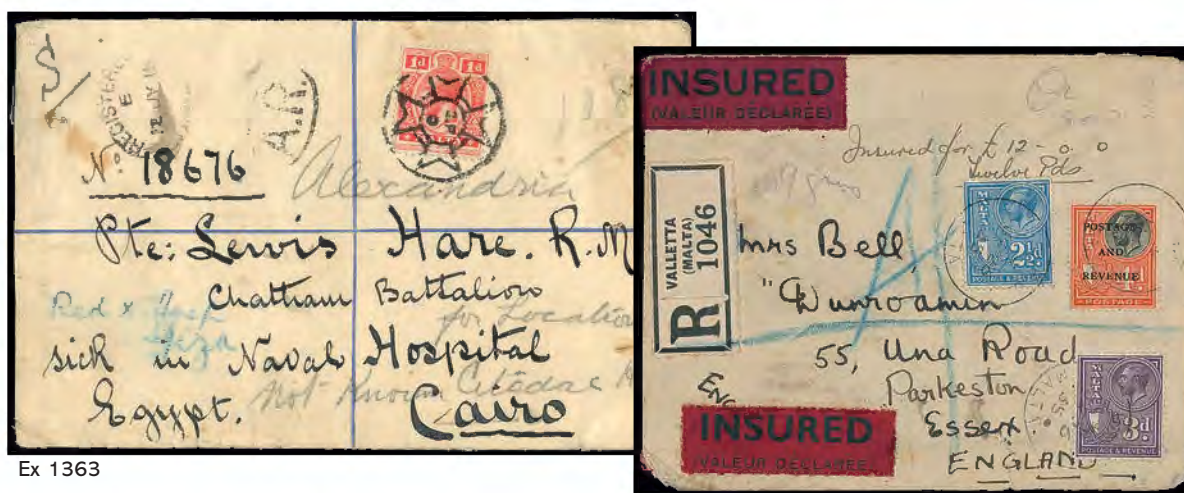 S
REGISTERED
E
A.R.
1d 1d
No 18676
Alexandria
Pte: Lewis Hare. R.M
Chatham Battalion
Red x Hosp
Giza
for Location
sick in Naval Hospital
Not Known Citadel H
Egypt. Cairo
Ex 1363
INSURED
(VALEUR DÉCLARÉE)
Insured for £ 12 - 0. 0
Twelve Pds
R
VALLETTA
(MALTA)
1046
MALTA
2½d
POSTAGE & REVENUE
POSTAGE
AND
REVENUE
POSTAGE
Mrs Bell,
"Dunroamin
55, Una Road
Parkeston
Essex
ENGLAND
MALTA
3d
POSTAGE & REVENUE
INSURED
(VALEUR DÉCLARÉE)